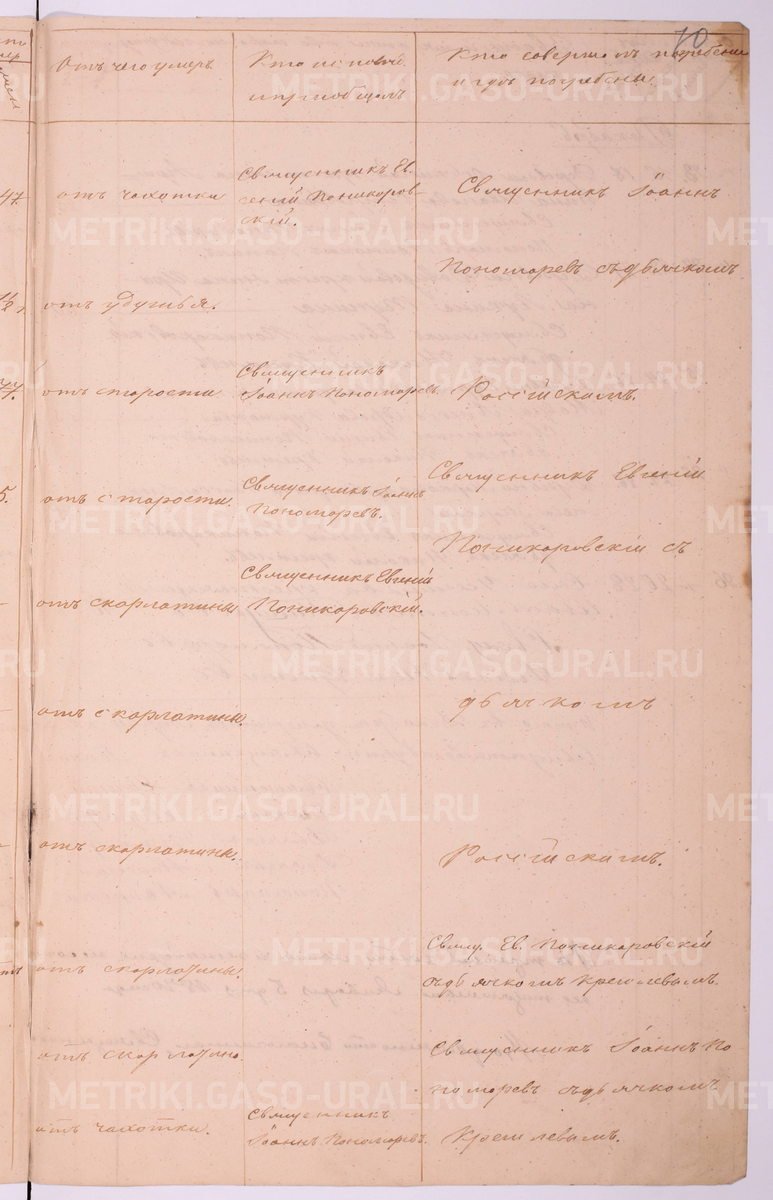 70
Отъ чего умеръ.
Кто исповѣд.
и пріобщалъ
Кто совершалъ погребеніе
и гдѣ погребены.
47.
отъ чахотки
Священникъ Ев-
геній Поникаров-
скій.
Священникъ Іоаннъ
Пономаревъ съ дьячкомъ
отъ удушья.
77.
отъ старости
Священникъ
Іоаннъ Пономаревъ.
Россійскимъ.
5.
отъ старости.
Священникъ Іоаннъ
Пономаревъ.
Священникъ Евгеній
Поникаровскій съ
отъ скарлатины
Священникъ Евгеній
Поникаровскій.
отъ скарлатины.
дьячкомъ
отъ скарлатины.
Россійскимъ.
отъ скарлатины.
Свящ. Ев. Поникаровскій
съ дьячкомъ Кремлевымъ.
отъ скарлатины.
Священникъ Іоаннъ По
номаревъ съ дьячкомъ
отъ чахотки.
Священникъ
Іоаннъ Пономаревъ.
Кремлевымъ.
METRIKI.GASO-URAL.RU